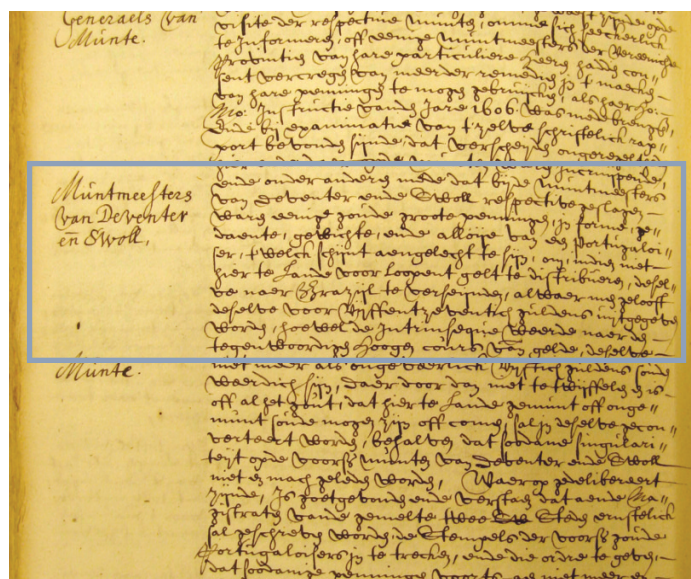 Generaels van
Munte.
visite der respective munten, omme sich seeckerlick
te Informeren, off eenige muntmeesters der Vereenichde
Provintien van hare particuliere heeren hadden con-
sent vercregen van meerder remedien in 't maecken
van hare penningen te mogen gebruijcken, als haer Ho:
Mo: Instructie vanden Jare 1606 was medebrengende,
bij examinatie van 't zelve schriftelick rap-
port bevonden sijnde, dat verscheijden ongeregeltheden
Muntmeesters
van Deventer
en Swoll,
ende onder anderen mede dat bijde Muntmeesters
van Deventer ende Swoll respective geslagen
waren eenige goude groote penningen, in forme, ge-
daente, gewichte, ende alloije van een Portugaloi-
ser, 't welck schijnt aengelecht te sijn, om, indien niet
hier te Lande voor loopent gelt te distribueren, desel-
ve naer Brazijl te verseijnden, alwaer men gelooft
deselve voor vijffentzeventich guldens uijtgegeven
worden, hoewel de Intrinseque weerde naer den
tegenwoordigen hoogen cours van gelde, deselve
Munte.
niet meer als ongeveerlick vijftich guldens soude
weerdich sijn, daer door dan niet te twijffelen en is
off al het gout, dat hier te Lande gemunt off onge-
munt soude mogen zijn off comen, sal in deselve gecon-
verteert worden, behalven dat sodane singulari-
teijt opde voorsz munten van Deventer ende Swoll
niet en mach geleden worden, Waer op gedelibereert
zijnde, Is goetgevonden ende verstaen dat aende Ma-
gistraten vande gemelte twee Steden ernstelick
sal geschreven worden, de Stempels der voorsz goude
Portugaloisers in te trecken, ende die ordre te geven,
dat soodanige penningen voorts aen niet meer en